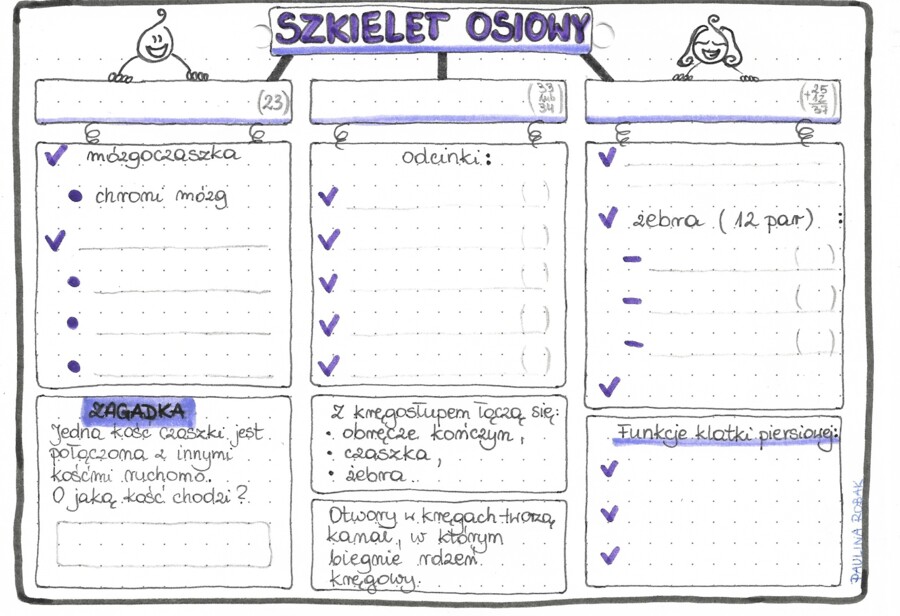 SZKIELET OSIOWY
(23)
(33
lub
34)
(+25
12
37)
✓ mózgoczaszka
• chroni mózg
✓
•
•
•
ZAGADKA
Jedna kość czaszki jest
połączona z innymi
kośćmi ruchomo.
O jaką kość chodzi?
odcinki:
✓ ( )
✓ ( )
✓ ( )
✓ ( )
✓ ( )
Z kręgosłupem łączą się:
• obręcze kończyn,
• czaszka,
• żebra.
Otwory w kręgach tworzą
kanał, w którym
biegnie rdzeń
kręgowy.
✓
✓ żebra (12 par) :
– ( )
– ( )
– ( )
✓
Funkcje klatki piersiowej:
✓
✓
✓
PAULINA ROBAK